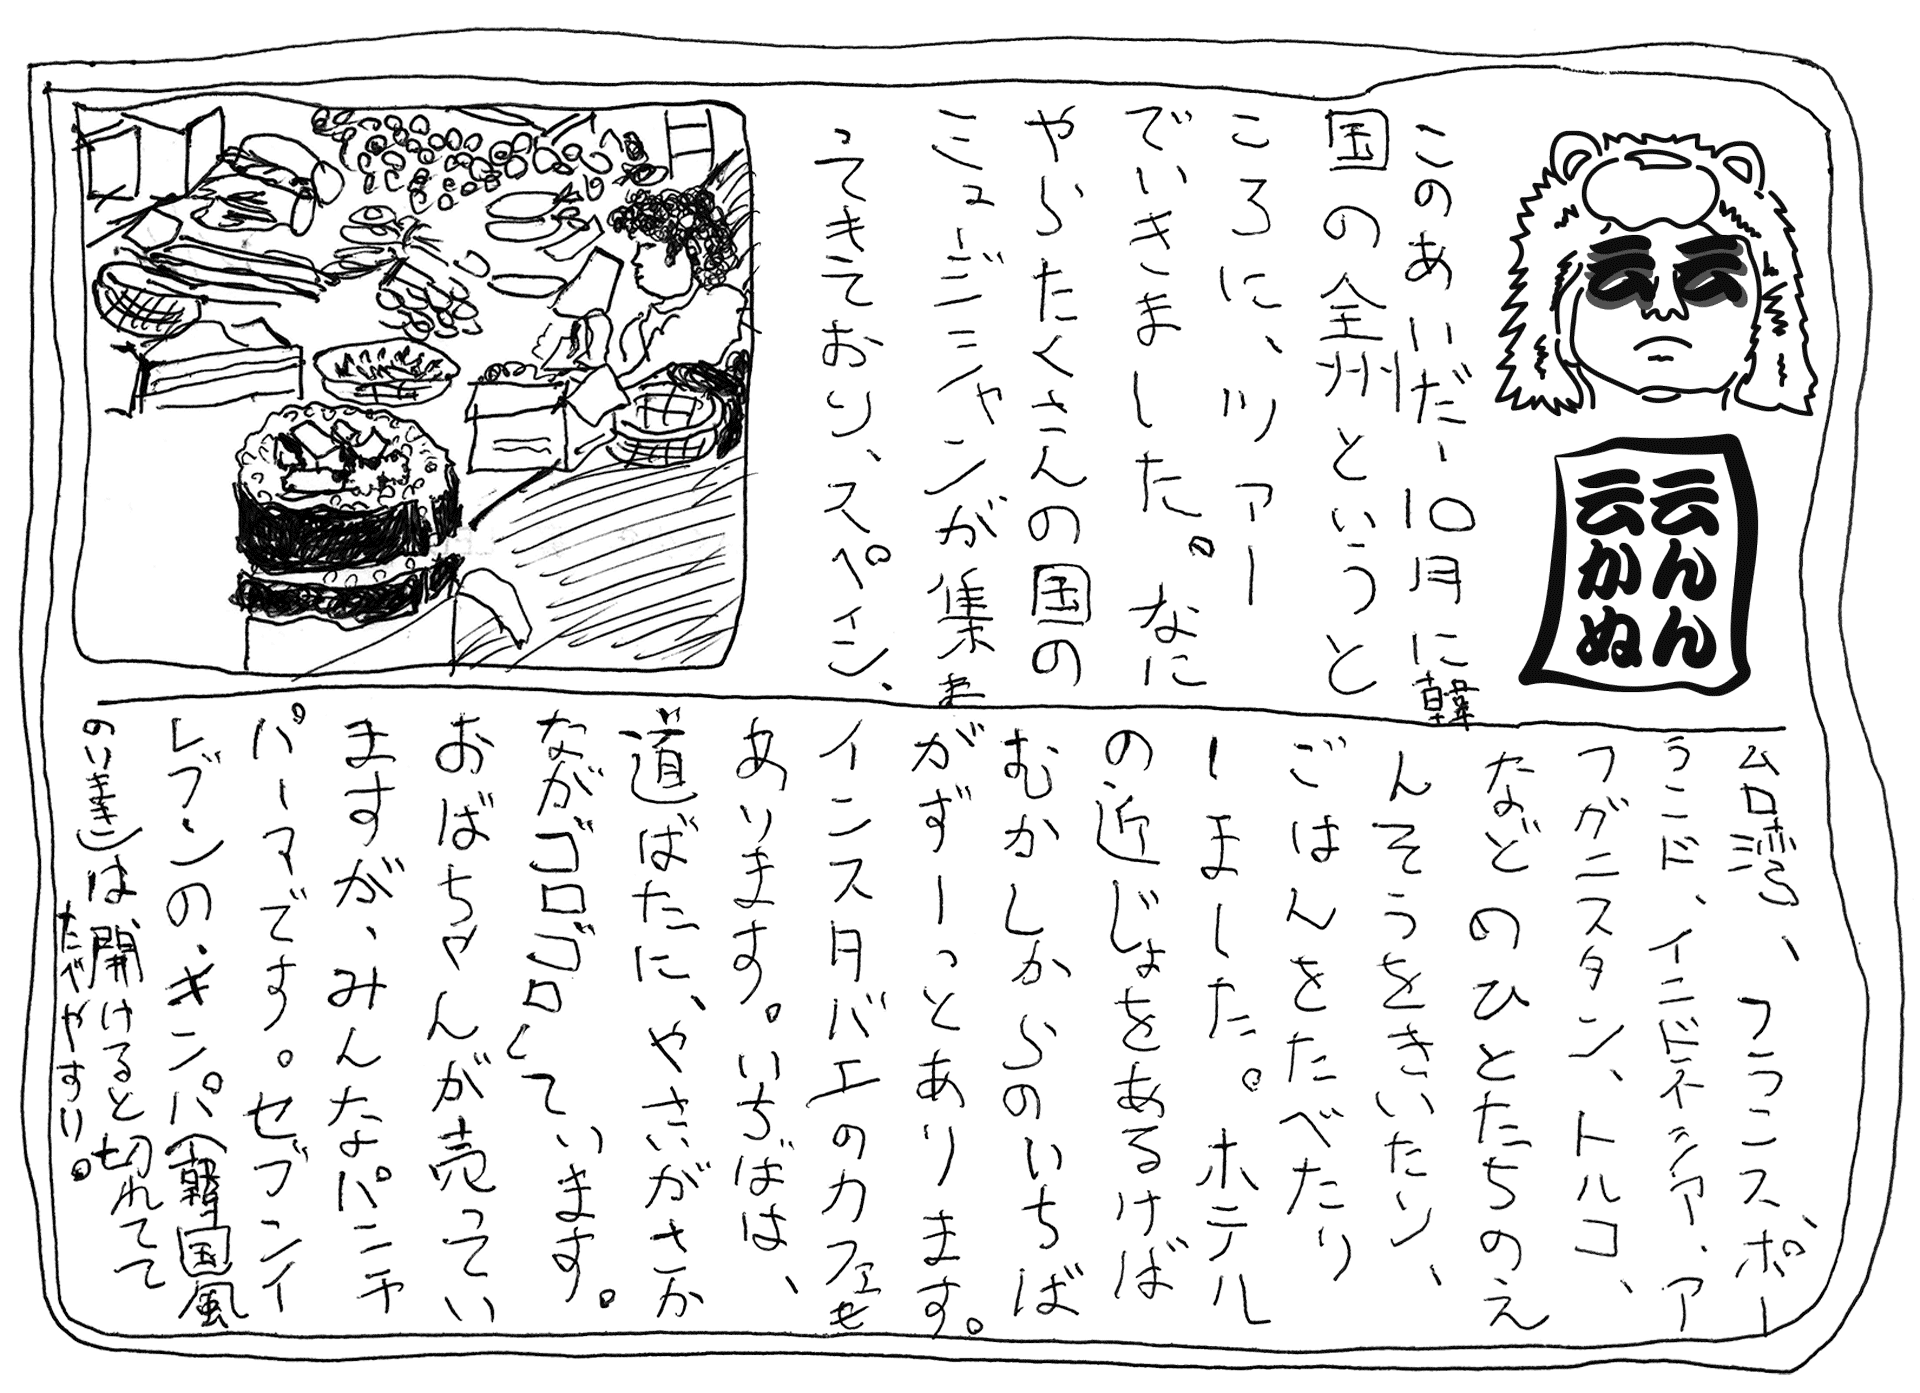 云んん
云かぬ
このあいだー10月に韓
国の全州というと
ころに、ツアー
でいきました。なに
やらたくさんの国の
ミュージシャンが集ま
ってきており、スペイン、
台湾、フランス、ポー
ランド、インドネシア、ア
フガニスタン、トルコ、
などのひとたちのえ
んそうをきいたり、
ごはんをたべたり
しました。ホテル
の近じょをあるけば
むかしからのいちば
がずーっとあります。
インスタバエのカフェも
あります。いちばは、
道ばたに、やさいがさか
ながゴロゴロしています。
おばちゃんが売ってい
ますが、みんなパンチ
パーマです。セブンイ
レブンの、キンパ(韓国風
のりまき)は、開けると切れてて
たべやすい。